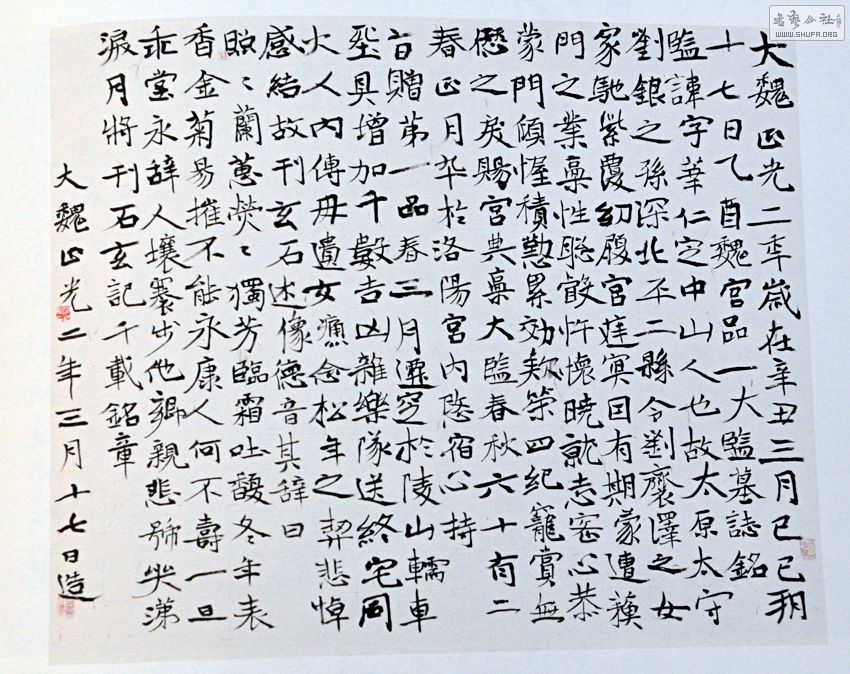 大魏正光二年歲在辛丑三月己巳朔
十七日乙酉魏宮品一大監墓誌銘
監諱字華仁定中山人也故太原太守
劉銀之孫深北平二縣令劉襃澤之女
家馳紫覆幼履宮庭冥因有期蒙遭
門之業稟性聡叡忤懷曉就志密心恭
蒙門傾惺積懃累効款策四紀寵賞無
愆之歲賜宮典稟大監春秋六十有二
春正月卒於洛陽宮內宿心持
旨贈第一品春三月遷窆於陵山轜車
具增加千數吉凶雜樂隊送終宅同
火人內傅毋遺女念松年之契悲悼
感結故刊玄石述像德音其辞曰
照〻蘭蕙熒〻獨芳臨霜吐馥冬年表
香金菊易摧不能永康人何不壽一旦
乖當永辞人壤步他鄉親悲號哭涕
淚月將刊石玄記千載銘章
大魏正光二年三月十七日造
書藝公社
WWW.SHUFA.ORG